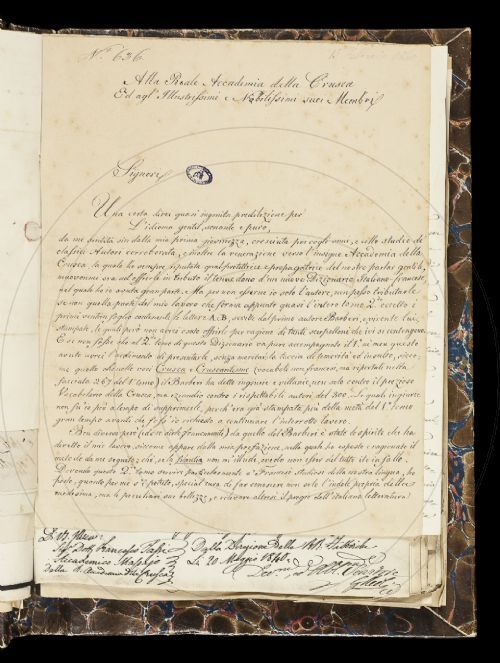 N.° 636
Alla Reale Accademia della Crusca
Ed agl' Illustrissimi e Nobilissimi suoi Membri
Signori
Una certa direi quasi ingenita predilezione per
L'idioma gentil, sonante e puro,
da me sentita sin dalla mia prima giovinezza, cresciuta poi cogli anni, e collo studio de'
classici Autori corroborata, e inoltre la venerazione verso l'insigne Accademia della
Crusca, la quale ho sempre riputata qual protettrice e propagatrice del nostro parlar gentile,
nuovonmi ora ad offerirle in tributo il 2° tomo d'un nuovo Dizionario Italiano-francese,
nel quale ho io avuta gran parte. Ma per non esserne io solo l'autore, non posso tributarle
se non quella parte del mio lavoro che forma appunto quasi l'intero tomo 2° eccetto i
primi ventun foglio contenenti le lettere A.B, scritte dal primo autore Barberi, e vivente lui
stampate, le quali però non avrei osato offrirle per cagione di tanti scerpelloni che ivi si contengono.
E se non fosse che il 2° tomo di questo Dizionario va pure accompagnato il 1°, ai non questo
avuto avrei l'ardimento di presentarle, senza meritar la taccia di temerità ed insulto, ricco
me quello che alle voci Crusca e Cruscantisme (vocaboli non francesi, ma riportati nella
facciata 267 del 1° tomo) il Barberi ha dette ingiurie e villanie non solo contro il prezioso
Vocabolario della Crusca, ma eziandio contro i rispettabili autori del 300. Le quali ingiurie
non fu in mio potere di sopprimerle, perch'era già stampata più della metà del 1° tomo
gran tempo avanti che foss'io richiesto a continuare l'interrotto lavoro.
Ben diverso però (siami dirlo francamente) da quello del Barberi è stato lo spirito che ha
diretto il mio lavoro, siccome appare dalla mia prefazione, nella quale ho esposto e ragionato il
metodo da me seguito; che, se la Filautia non m'illude, credo non esser del tutto ito in fallo.
Dovendo questo 2° tomo servire particolarmente a' Francesi studiosi della nostra lingua, ho
posto, quando per me s'è potuto, special cura di far conoscere non solo l'indole propria della
medesima, ma le peculiari sue bellezze, e rilevare altresì il pregio dell'italiana letteratura
Sig. Dott. Francesco Tassi
Accademico
della R. Accademia della Crusca
Dalla Direzione delle RR. Fabbriche
Li 20 Maggio 1840